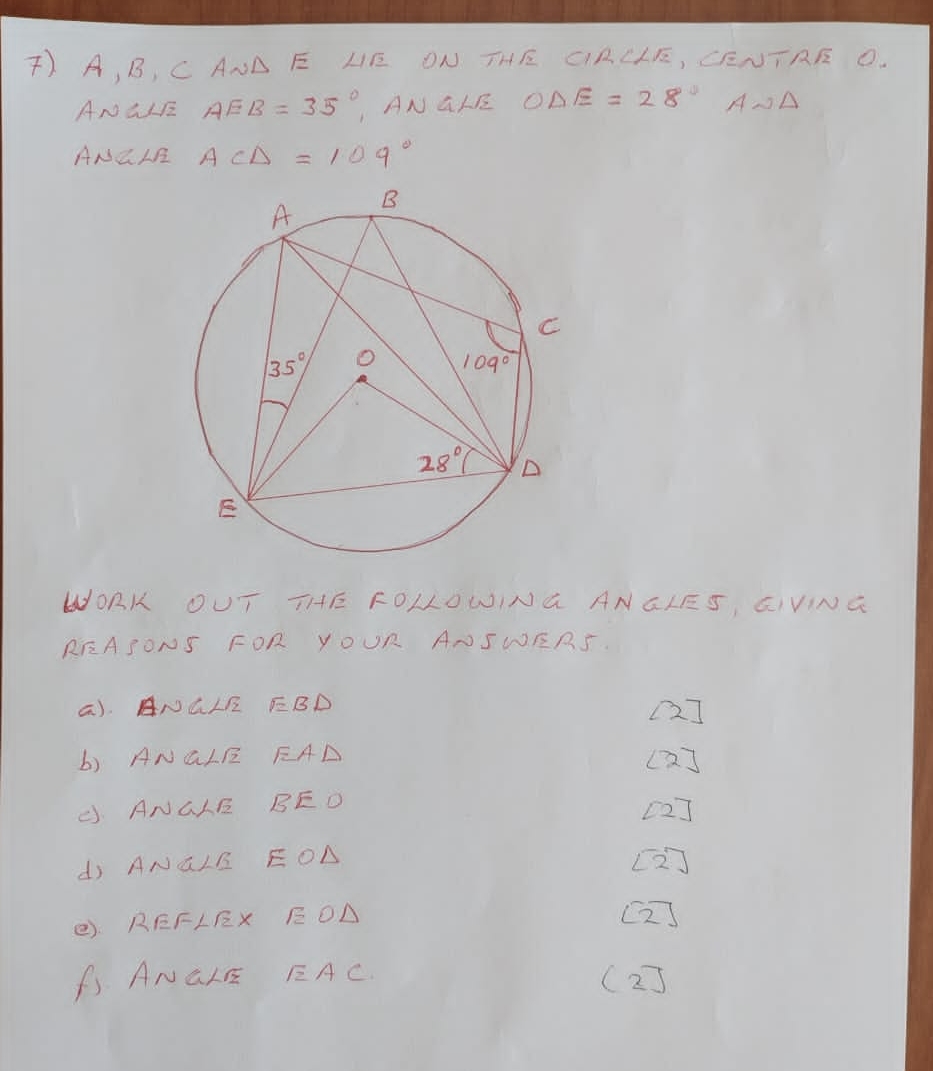 7) A, B, C AND E LIE ON THE CIRCLE, CENTRE O.
ANGLE AEB = 35°, ANGLE ODE = 28° AND
ANGLE ACD = 109°
A
B
C
109°
35°
O
28°
D
E
WORK OUT THE FOLLOWING ANGLES, GIVING
REASONS FOR YOUR ANSWERS.
a). ANGLE EBD [2]
b) ANGLE EAD [2]
c). ANGLE BEO [2]
d) ANGLE EOD [2]
e). REFLEX EOD [2]
f) ANGLE EAC. [2]